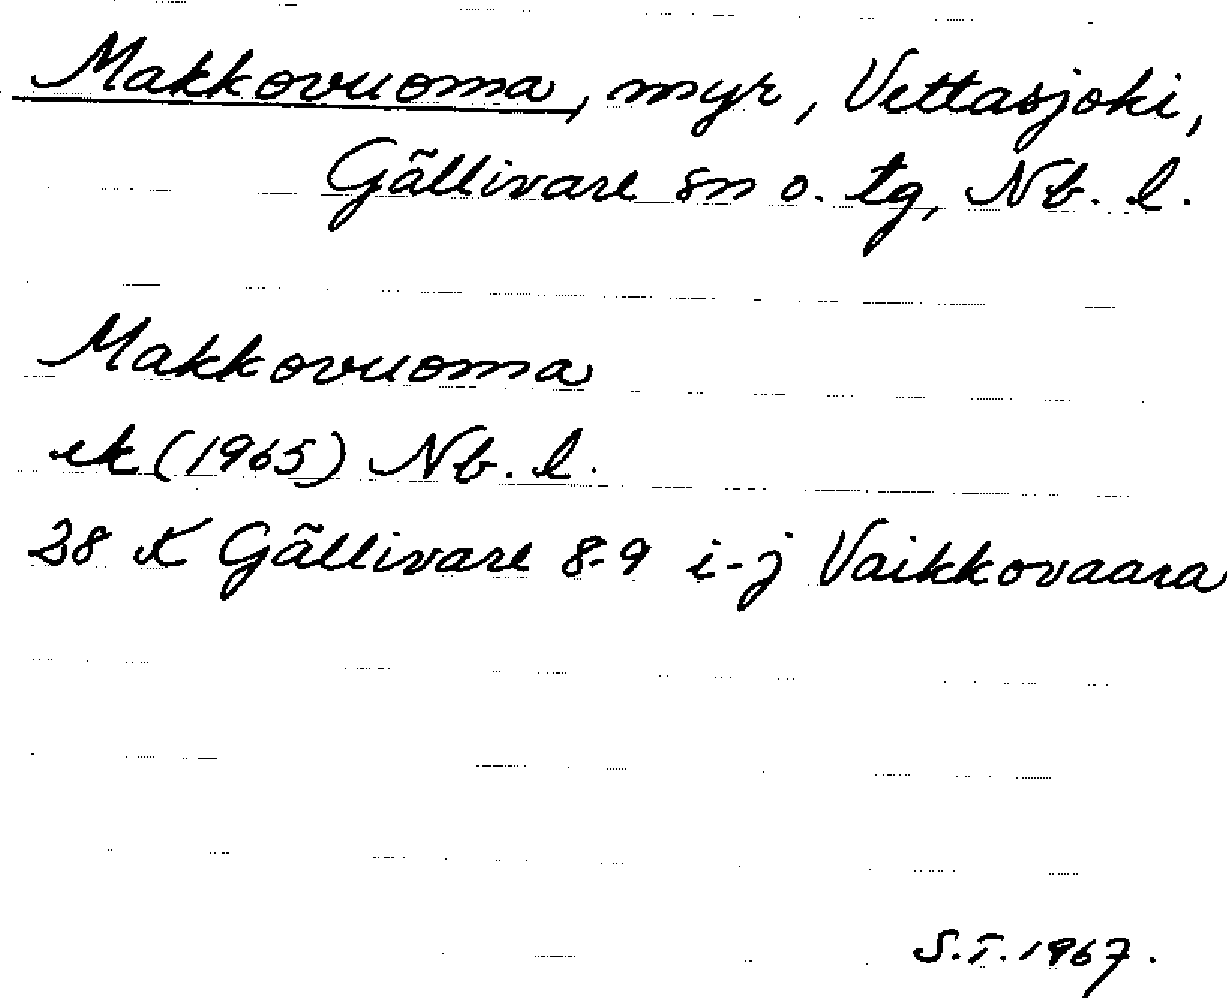 Makkovuoma, myr, Vettasjoki,
Gällivare sn o. tg, Nb. l.
Makkovuoma
ek (1965) Nb. l.
28 K Gällivare 8-9 i-j Vaikkovaara
S.T. 1967.